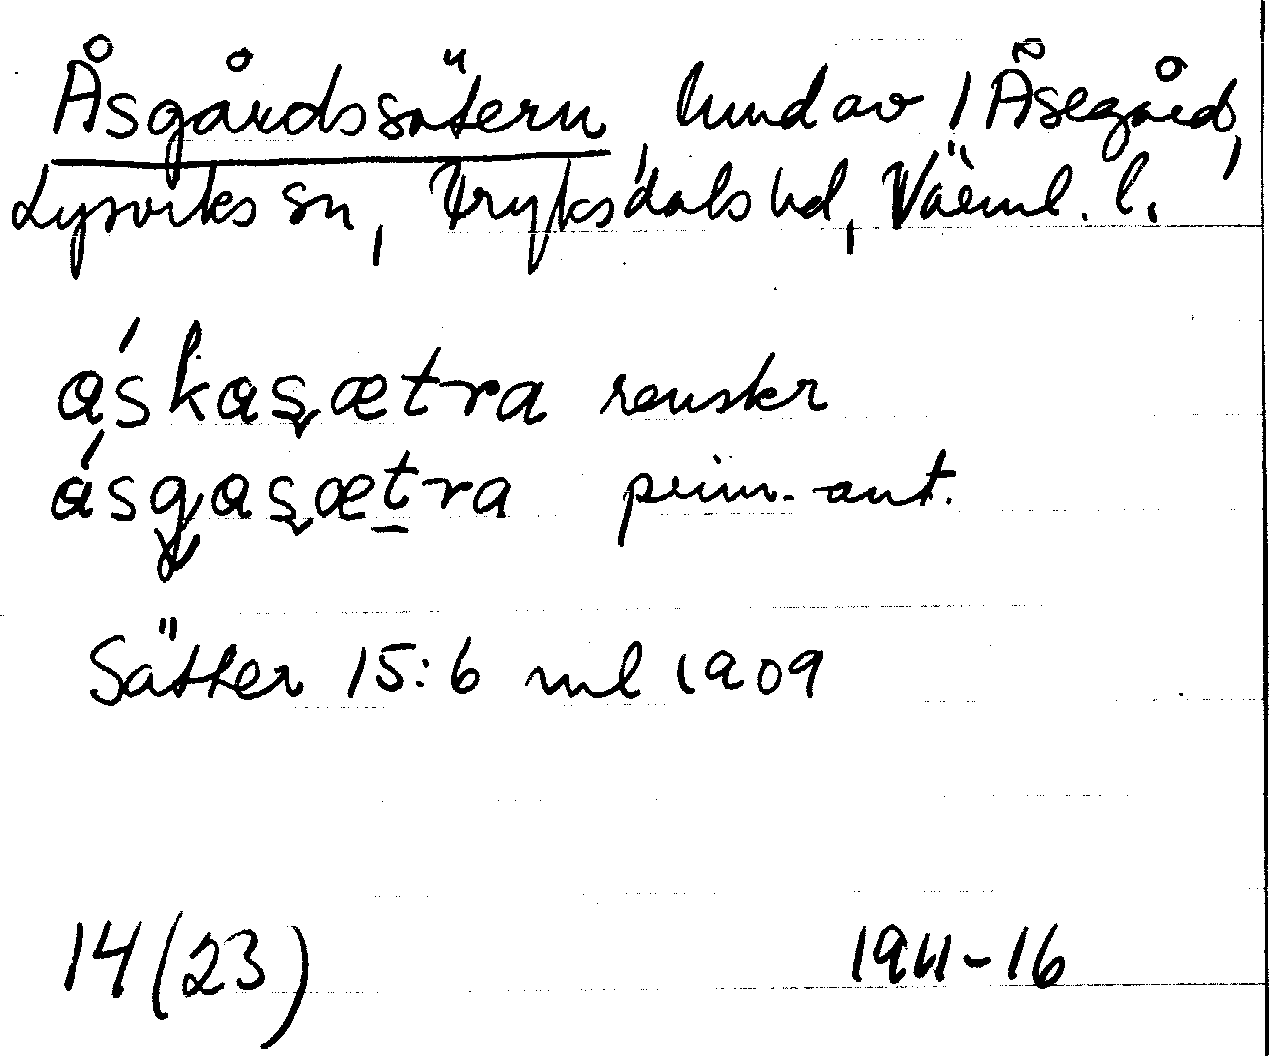 Åsgårdssätern, lund av 1 Åsegård,
Lysviks sn, Fryksdals hd, Värml. l.
áskasætra renskr
ásgasætra prim.-ant.
Sätter 15:6 ml 1909
14 (23) 1911-16